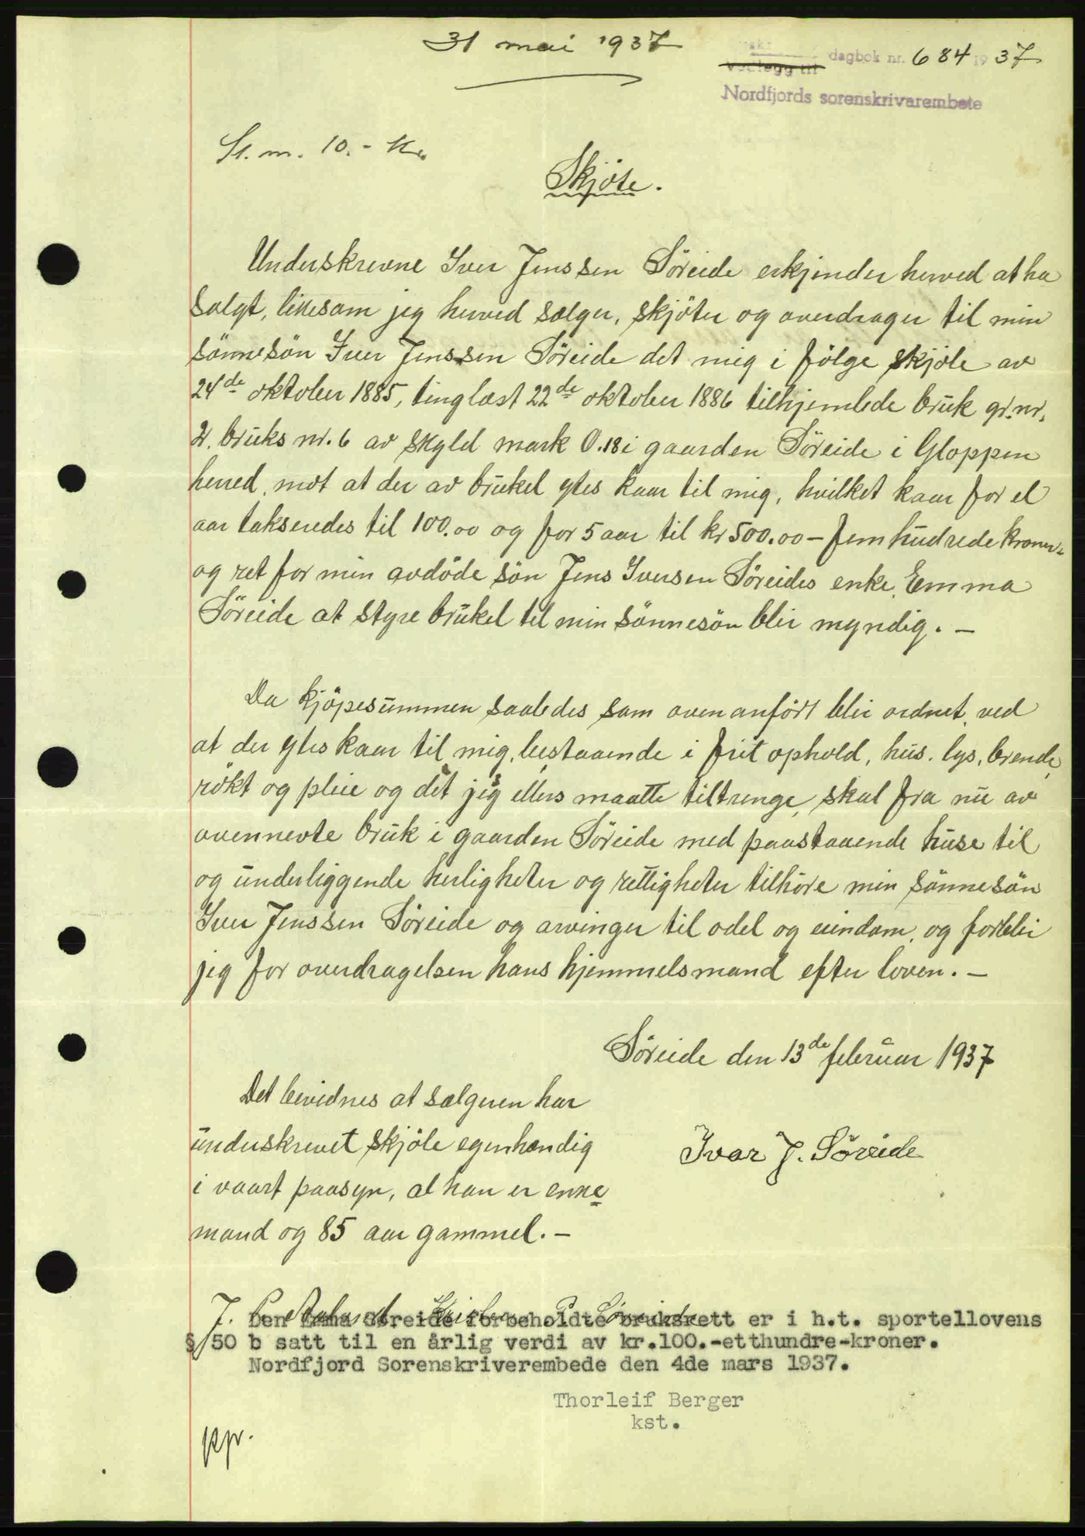 31 mai 1937
dagbok nr. 684 19 37
Vedlegg til
Nordfjords sorenskrivarembete
St. m. 10.- Kr.
Skjöte.
Underskrevne Iver Jenssen Söreide erkjender herved at ha
solgt, likesom jeg herved sælger, skjöter og overdrager til min
sönnesön Iver Jenssen Söreide det mig i fölge skjöte av
24de oktober 1885, tinglæst 22de oktober 1886 tilhjemlede bruk gr. nr.
2. bruks nr. 6 av skyld mark 0.18 i gaarden Söreide i Gloppen
herred, mot at der av bruket ytes kaar til mig, hvilket kaar for et
aar takseredes til 100.00 og for 5 aar til kr 500.00 – femhudrede kroner –
og ret for min avdöde sön Jens Iversen Söreides enke, Emma
Söreide at styre bruket til min sönnesön blir myndig. –
Da kjöpesummen saaledes som ovenanfört blir ordnet, ved
at der ytes kaar til mig, bestaaende i frit ophold, hus, lys, brende,
rökt og pleie og det jeg ellers maatte tiltrenge, skal fra nu av
ovennevte bruk i gaarden Söreide med paastaaende huse til
og underliggende herligheter og rettigheter tilhöre min sönnesön
Iver Jenssen Söreide og arvinger til odel og eiendom, og forblir
jeg for overdragelsen hans hjemmelsmand efter loven. –
Söreide den 13de februar 1937
Det bevidnes at sælgeren har
underskrevet skjöte egenhendig
i vaart paasyn, at han er enke
mand og 85 aar gammel. –
Ivar J. Söreide
J.
Den Emma Søreide forbeholdte bruksrett er i h.t. sportellovens
§ 50 b satt til en årlig verdi av kr.100.-etthundre-kroner.
Nordfjord Sorenskriverembede den 4de mars 1937.
Thorleif Berger
kst.
ppr.